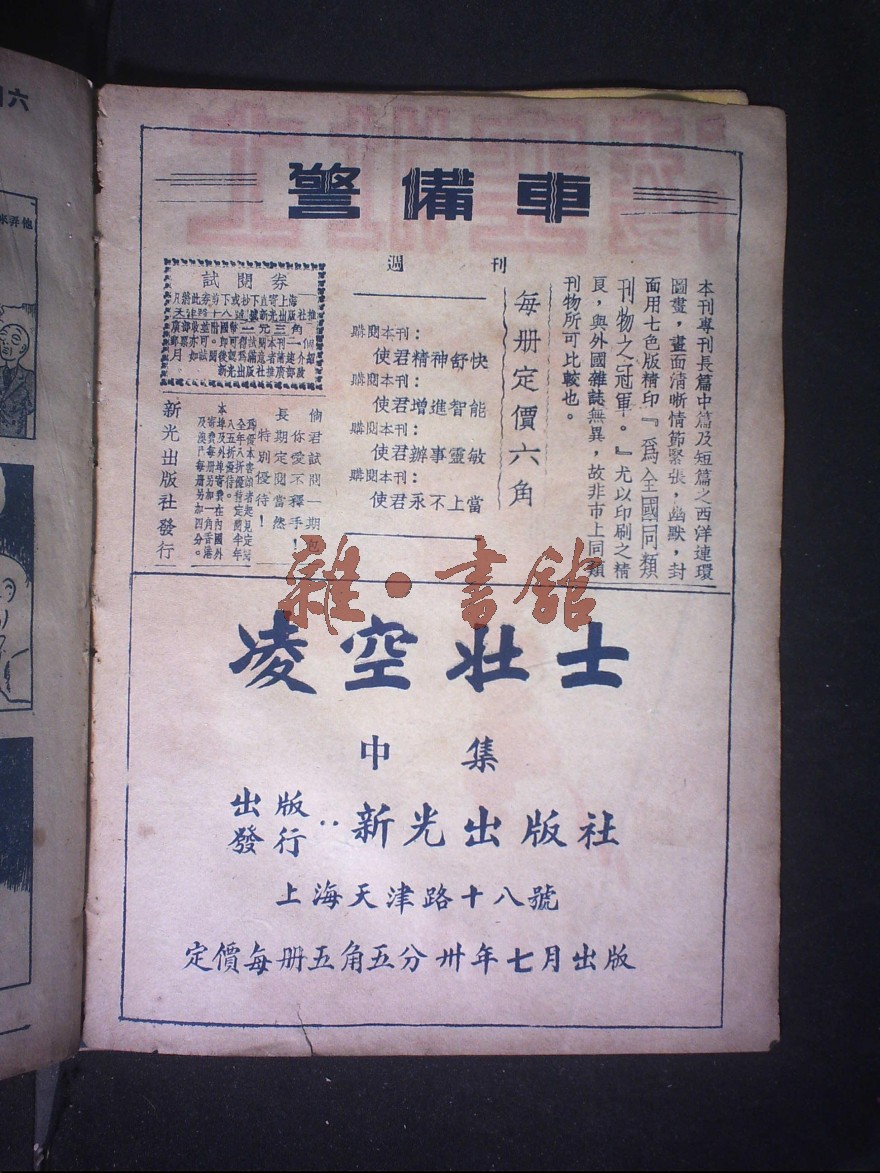 警備車
週刊
本刊專刊長篇中篇及短篇之西洋連環
圖畫，畫面清晰情節緊張，幽默，封
面用七色版精印『爲全國同類
刊物之冠軍。』尤以印刷之精
良，與外國雜誌無異，故非市上同類
刊物所可比較也。
每册定價六角
購閱本刊：
使君精神舒快
購閱本刊：
使君增進智能
購閱本刊：
使君辦事靈敏
購閱本刊：
使君永不上當
試閱券
凡將此券剪下或抄下直寄上海
天津路十八號新光出版社推
廣部收並附國幣一元三角
郵票亦可。即可得試閱本刊一個
月
新光出版社推廣部啟
倘君試閱一期包
你愛不釋手！
長期定閱當然
特別優待！
新光出版社發行
雜·書館
凌空壯士
中集
出版
發行：新光出版社
上海天津路十八號
定價每册五角五分卅年七月出版
六
他